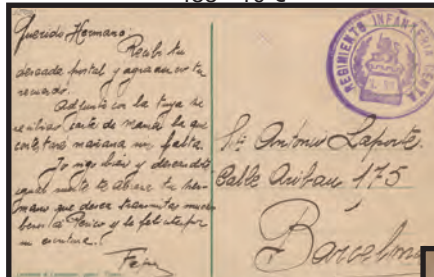 Querido Hermano:
Recibí tu
deseada postal y agradezco tu
recuerdo.
Adjunto con la tuya he
recibido carta de mamá la que
contestaré mañana sin falta.
Yo sigo bien y deseándote
igual suerte te abraza tu her-
mano que desea transmitas muchos
besos a Perico y le felicite por
su escritura.
REGIMIENTO INFANTERIA CEUTA
Sr. Antonio Laporte.
Calle Aribau 175
Barcelona